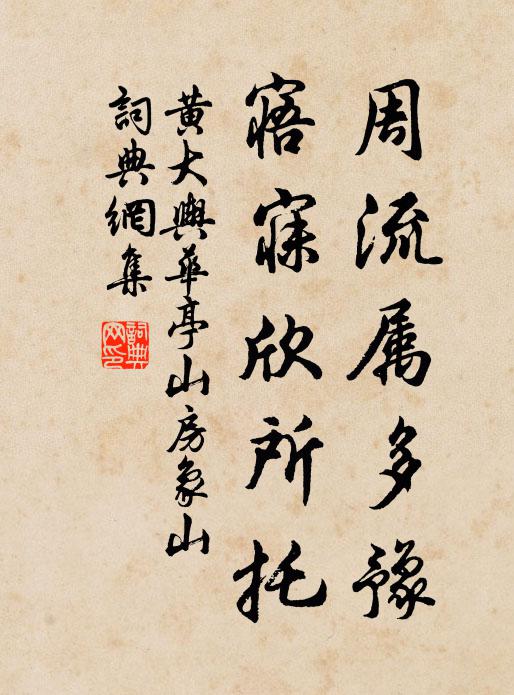 周流属多豫
寤寐欣所托
黄大舆華亭山房象山
詞典網集
詞典網印